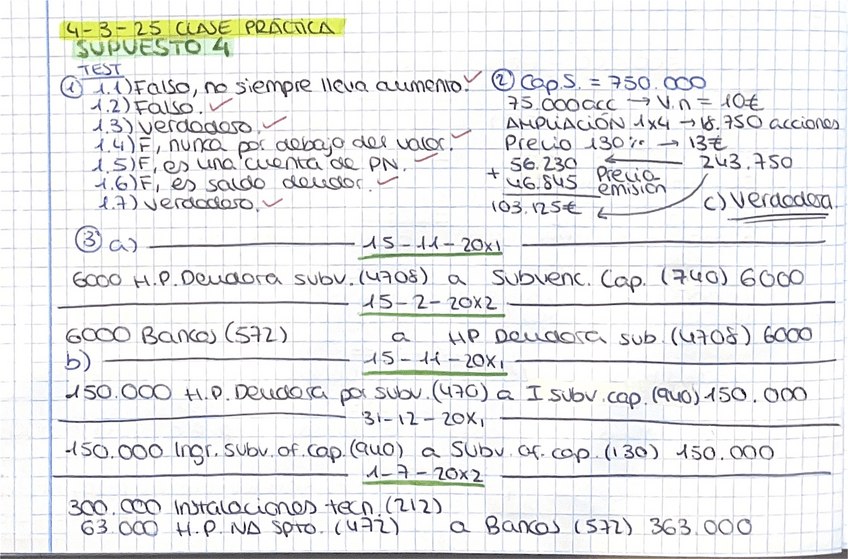 4-3-25 CLASE PRÁCTICA
SUPUESTO 4
TEST
① 1.1) Falso, no siempre lleva aumento. ✓
1.2) Falso. ✓
1.3) Verdadero. ✓
1.4) F, nunca por debajo del valor. ✓
1.5) F, es una cuenta de PN. ✓
1.6) F, es saldo deudor. ✓
1.7) Verdadero. ✓
② Cap.S. = 750.000
75.000 acc → V.n = 10€
AMPLIACIÓN 1x4 → 18.750 acciones
Precio 130% → 13€
56.230 ← 243.750
+ 46.845 Precio emisión
103.125€ c) Verdadera.
③ a) 15-11-20x1
6000 H.P. Deudora subv. (4708) a Subvenc. Cap. (740) 6000
15-2-20x2
6000 Bancos (572) a HP Deudora sub. (4708) 6000
b) 15-11-20x1
150.000 H.P. Deudora por subv. (470) a I subv. cap. (940) 150.000
31-12-20x1
150.000 Ingr. subv. of. cap. (940) a Subv. of. cap. (130) 150.000
1-7-20x2
300.000 Instalaciones tecn. (212)
63.000 H.P. NA Spto. (472) a Bancos (572) 363.000